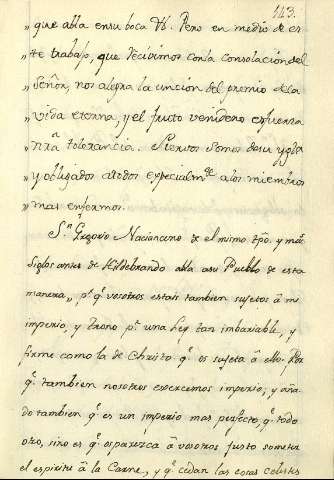 143.
„ que abla en su boca Vs. Pero en medio de es-
„ te trabajo, que Recivimos con la consolación del
„ Señor, nos alegra la uncion del premio de la
„ vida eterna, y el fruto venidero esfuerza
„ nrã tolerancia. Siervos somos de su ygla
„ y obligados atodos especialmte alos miembros
„ mas enfermos.
Sn Gregorio Nacianceno de el mismo tpõ. y mãs
Siglos antes de Hildebrando abla asu Pueblo de esta
manera„ pr. q.e vosotros estais tambien sujetos â mi
imperio, y trono pr. una Ley tan imbariable, y
firme como la de Christo q.e os sujeta â ello. Por
q.e tambien nosotros exercemos imperio; y aña-
do tambien q.e es un imperio mas perfecto, q.e todo
otro, sino es q.e os parezca â vosotros justo someter
el espiritu â la Carne, y q.e cedan las cosas celestes